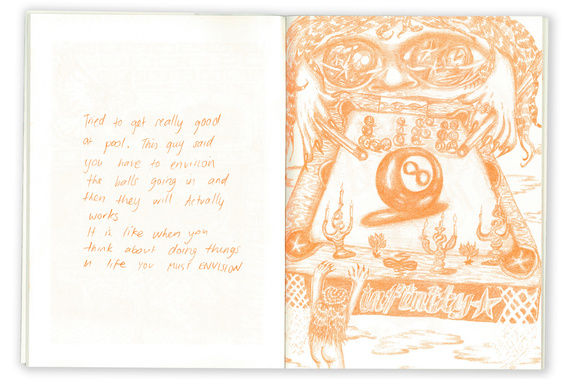 Tried to get really good
at pool. This guy said
you have to envision
the balls going in and
then they will Actually
works
It is like when you
think about doing things
in life you must ENVISION
8
infinity